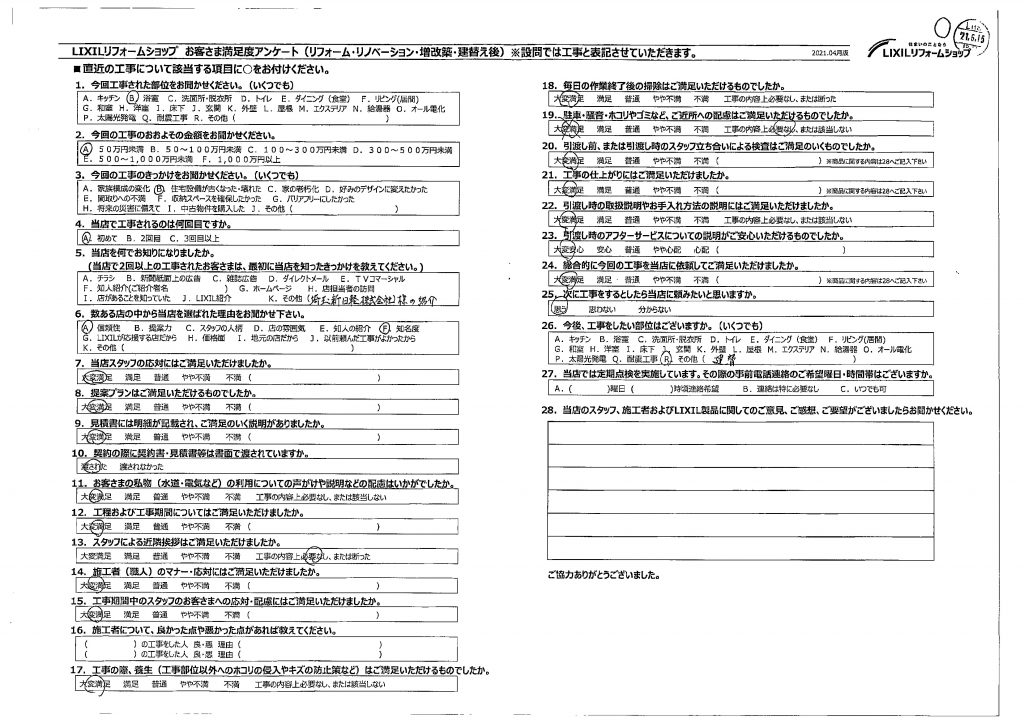 LIXILリフォームショップ お客さま満足度アンケート（リフォーム・リノベーション・増改築・建替え後）※設問では工事と表記させていただきます。
2021.04月版
住まいのことなら
LIXILリフォームショップ
■直近の工事について該当する項目に○をお付けください。
1. 今回工事された部位をお聞かせください。（いくつでも）
A. キッチン B. 浴室 C. 洗面所・脱衣所 D. トイレ E. ダイニング（食堂） F. リビング（居間）
G. 和室 H. 洋室 I. 床下 J. 玄関 K. 外壁 L. 屋根 M. エクステリア N. 給湯器 O. オール電化
P. 太陽光発電 Q. 耐震工事 R. その他（ ）
2. 今回の工事のおおよその金額をお聞かせください。
A. 50万円未満 B. 50～100万円未満 C. 100～300万円未満 D. 300～500万円未満
E. 500～1,000万円未満 F. 1,000万円以上
3. 今回の工事のきっかけをお聞かせください。（いくつでも）
A. 家族構成の変化 B. 住宅設備が古くなった・壊れた C. 家の老朽化 D. 好みのデザインに変えたかった
E. 間取りへの不満 F. 収納スペースを確保したかった G. バリアフリーにしたかった
H. 将来の災害に備えて I. 中古物件を購入した J. その他（ ）
4. 当店で工事されるのは何回目ですか。
A. 初めて B. 2回目 C. 3回目以上
5. 当店を何でお知りになりましたか。
（当店で2回以上の工事されたお客さまは、最初に当店を知ったきっかけを教えてください。）
A. チラシ B. 新聞紙面上の広告 C. 雑誌広告 D. ダイレクトメール E. TVコマーシャル
F. 知人紹介（ご紹介者名 ） G. ホームページ H. 店担当者の訪問
I. 店があることを知っていた J. LIXIL紹介 K. その他（埼玉新日軽株式会社）様の紹介
6. 数ある店の中から当店を選ばれた理由をお聞かせ下さい。
A. 信頼性 B. 提案力 C. スタッフの人柄 D. 店の雰囲気 E. 知人の紹介 F. 知名度
G. LIXILが応援する店だから H. 価格面 I. 地元の店だから J. 以前頼んだ工事がよかったから
K. その他（ ）
7. 当店スタッフの応対にはご満足いただけましたか。
大変満足 満足 普通 やや不満 不満（ ）
8. 提案プランはご満足いただけるものでしたか。
大変満足 満足 普通 やや不満 不満（ ）
9. 見積書には明細が記載され、ご満足のいく説明がありましたか。
大変満足 満足 普通 やや不満 不満（ ）
10. 契約の際に契約書・見積書等は書面で渡されていますか。
渡された 渡されなかった
11. お客さまの私物（水道・電気など）の利用についての声がけや説明などの配慮はいかがでしたか。
大変満足 満足 普通 やや不満 不満 工事の内容上必要なし、または該当しない
12. 工程および工事期間についてはご満足いただけましたか。
大変満足 満足 普通 やや不満 不満（ ）
13. スタッフによる近隣挨拶はご満足いただけましたか。
大変満足 満足 普通 やや不満 不満 工事の内容上必要なし、または断った
14. 施工者（職人）のマナー・応対にはご満足いただけましたか。
大変満足 満足 普通 やや不満 不満（ ）
15. 工事期間中のスタッフのお客さまへの応対・配慮にはご満足いただけましたか。
大変満足 満足 普通 やや不満 不満（ ）
16. 施工者について、良かった点や悪かった点があれば教えてください。
（ ）の工事をした人 良・悪 理由（ ）
（ ）の工事をした人 良・悪 理由（ ）
17. 工事の際、養生（工事部位以外へのホコリの侵入やキズの防止策など）はご満足いただけるものでしたか。
大変満足 満足 普通 やや不満 不満 工事の内容上必要なし、または該当しない
18. 毎日の作業終了後の掃除はご満足いただけるものでしたか。
大変満足 満足 普通 やや不満 不満 工事の内容上必要なし、または断った
19. 駐車・騒音・ホコリやゴミなど、ご近所への配慮はご満足いただけるものでしたか。
大変満足 満足 普通 やや不満 不満 工事の内容上必要なし、または該当しない
20. 引渡し前、または引渡し時のスタッフ立ち合いによる検査はご満足のいくものでしたか。
大変満足 満足 普通 やや不満 不満（ ）※商品に関する内容は28へご記入下さい
21. 工事の仕上がりにはご満足いただけましたか。
大変満足 満足 普通 やや不満 不満（ ）※商品に関する内容は28へご記入下さい
22. 引渡し時の取扱説明やお手入れ方法の説明にはご満足いただけましたか。
大変満足 満足 普通 やや不満 不満 工事の内容上必要なし、または該当しない
23. 引渡し時のアフターサービスについての説明がご安心いただけるものでしたか。
大変安心 安心 普通 やや心配 心配（ ）
24. 総合的に今回の工事を当店に依頼してご満足いただけましたか。
大変満足 満足 普通 やや不満 不満（ ）※商品に関する内容は28へご記入下さい
25. 次に工事をするとしたら当店に頼みたいと思いますか。
思う 思わない 分からない
26. 今後、工事をしたい部位はございますか。（いくつでも）
A. キッチン B. 浴室 C. 洗面所・脱衣所 D. トイレ E. ダイニング（食堂） F. リビング（居間）
G. 和室 H. 洋室 I. 床下 J. 玄関 K. 外壁 L. 屋根 M. エクステリア N. 給湯器 O. オール電化
P. 太陽光発電 Q. 耐震工事 R. その他（ 建替 ）
27. 当店では定期点検を実施しています。その際の事前電話連絡のご希望曜日・時間帯はございますか。
A.（ ）曜日（ ）時頃連絡希望 B. 連絡は特に必要なし C. いつでも可
28. 当店のスタッフ、施工者およびLIXIL製品に関してのご意見、ご感想、ご要望がございましたらお聞かせください。
ご協力ありがとうございました。